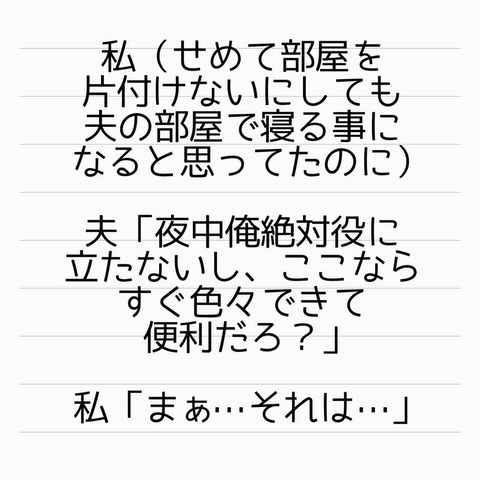 私（せめて部屋を
片付けないにしても
夫の部屋で寝る事に
なると思ってたのに）
夫「夜中俺絶対役に
立たないし、ここなら
すぐ色々できて
便利だろ？」
私「まぁ…それは…」